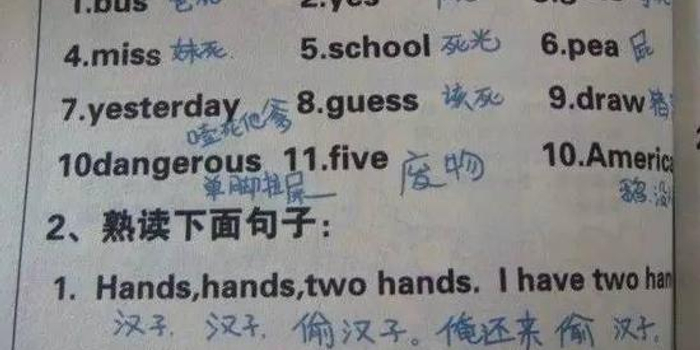 1.bus 爸死 2.yes
4.miss 妹死 5.school 死光 6.pea 屁
7.yesterday 8.guess 该死 9.draw
嗑死他爹
10dangerous 11.five 废物 10.Americ
单脚拉屎
2、熟读下面句子：
1. Hands,hands,two hands. I have two han
汉子. 汉子. 偷汉子。俺还来偷汉子.